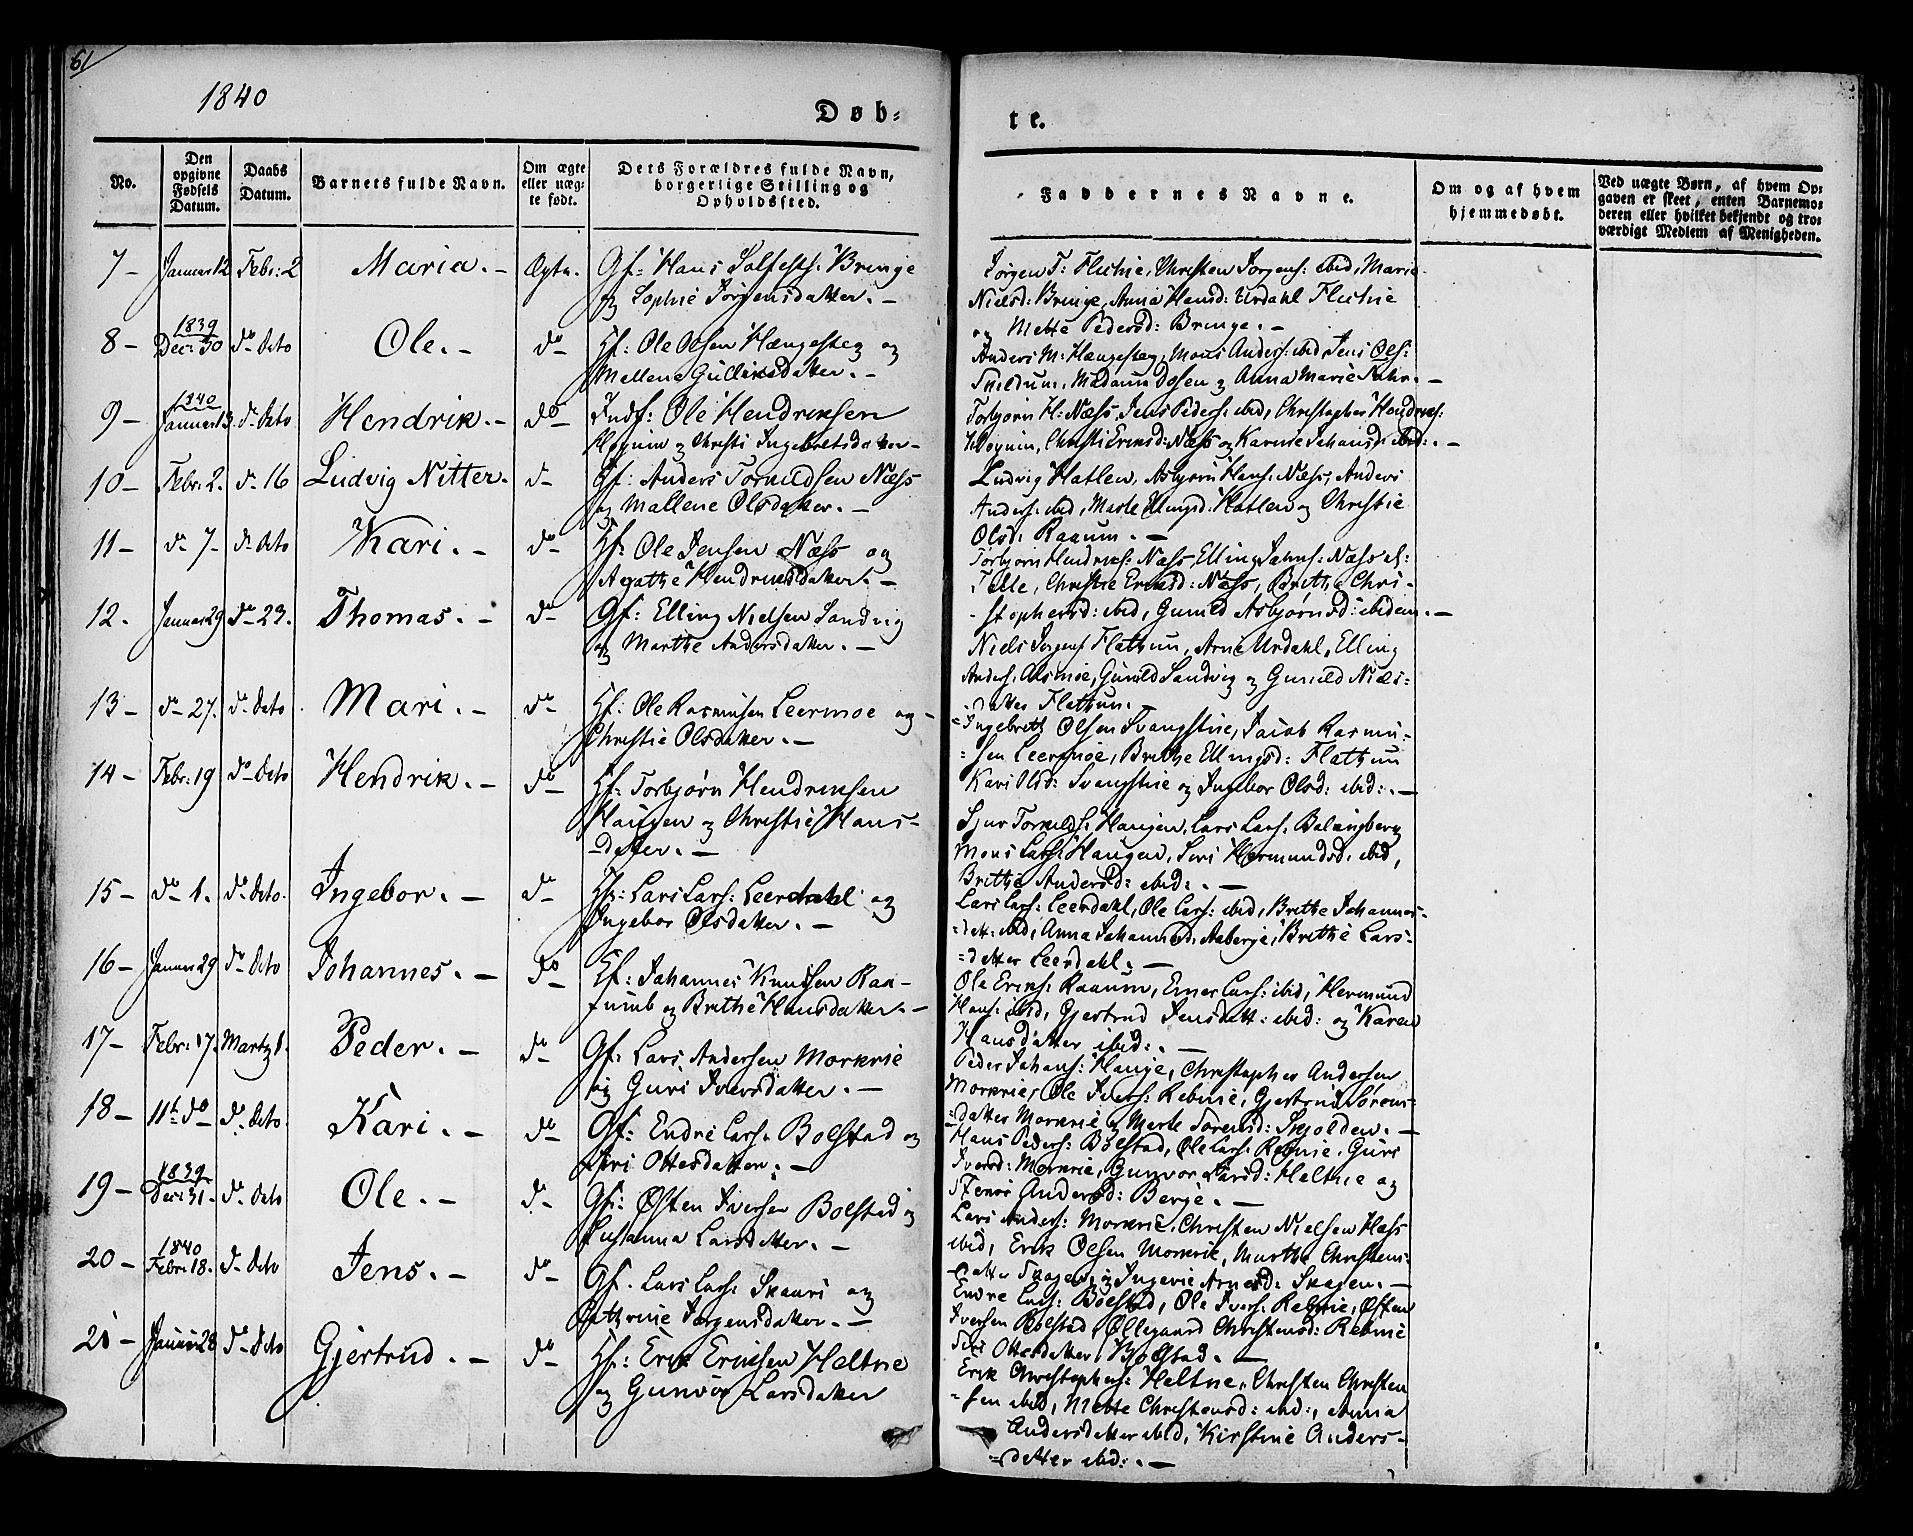 61
1840
Døb-
te.
No.
Den opgivne Fødsels Datum.
Daabs Datum.
Barnets fulde Navn.
Om ægte eller uægte født.
Dets Forældres fulde Navn, borgerlige Stilling og Opholdssted.
Faddernes Navne.
Om og af hvem hjemmedøbt.
Ved uægte Børn, af hvem Opgaven er skeet, enten Barnemoderen eller hvilket bekjendt og troværdigt Medlem af Menigheden.
7 – Januar 12 Febr: 2 Maria. – Ægte. Gf: Hans Brings
og Sophie Jørgensdatter. –
Jørgen T: Christen Jørgens: ibid, Marie
Nielsd: Bringe, Anna Hansd: Urdahl
og Mette Pedersd: Bringe. –
8 – 1839 Dec: 30 do Dito Ole. – do Hf: Ole Olsen Hængesteg og
Mallene datter. –
Anders M: Hængesteg, Mons Anders: ibid Jens Ols:
Madame Dosen og Anna Marie –
9 – 1840 Januar 13 do Dito Hendrik. – do Indf: Ole Hendriksen
og Christi Ingebretsdatter –
Torbjørn H: Næss Jens Peders: ibid, Christopher Hendriks:
Christi Eriksd: Næss og Karine Johansd: ibid: . –
10 – Febr: 2. do 16 Ludvig Nitter. d – Gf: Anders Torkildsen Næss
og Mallene Olsdatter. –
Ludvig Hatlen, Asbjørn Hans: Næss, Anders
Anders: ibid, Marte Hatlen og Christie
Olsd: Raaum. –
11 – do 7 – do Dito Kari. – do Hf: Ole Jensen Næss og
Agathe Hendriksdatter. –
Torbjørn Hendriks: Næss, Elling Johns: Næss el:
Christie Eriksd: Næss, Brithe Chri-
stophersd: ibid, Gunild Asbjørnsd: ibidem. –
12. Januar 29 do 23. Thomas. – do Gf: Elling Nielsen Sandvig
og Marthe Andersdatter. –
Niels Jørgens Flattun, Arne Urdahl, Elling
Anders: Gunild Sandvig og Gunild Niels-
datter Flattun.
13 – do 27. do Dito Mari. – do Hf: Ole Rasmusen Leermoe og –
Christie Olsdatter. –
Ingebrett Olsen Svangstrie, Jacob Rasmu-
sen Leermoe, Brithe Ellingsd: Flattun
Kari Olsd: Svangstrie og Ingebor Olsd: ibid: . –
14 – Febr: 19 do Dito Hendrik. – do Hf: Torbjørn Hendriksen
Haugen og Christie Hans-
datter. –
Sjur Torkilds: Haugen, Lars Lars: Bolingberg
Mons Lars: Haugen, Siri Hermundsd: ibid,
Brithe Andersd: ibid: . –
15 – do 1. do Dito. Ingebor. – do Hf: Lars Lars: Leerdahl og
Ingebor Olsdatter. –
Lars Lars: Leerdahl, Ole Lars: ibid, Brithe Johannes-
datt: ibid, Anna Johannesd: Aaberge, Brithe Lars-
datter Leerdahl. –
16 – Januar 29 do Dito Johannes. – do Hf: Johannes Knudsen Raa-
og Brithe Hansdatter. –
Ole Eriks: Raaum, Ener Lars: ibid, Hermund
Hans: ibid, Gjertrud Jensdatt: ibid: og Karen
Hansdatter ibid: . –
17 – Febr: 17. Marty 1. Peder. – do Gf: Lars Andersen Morkrie
og Guri Iversdatter. –
Peder Johans: Hauge, Christopher Andersen
Morkrie, Ole Ivers: Rebnie, Gjertrud Sørens-
datter Morkrie og Merte Sørensd: Skjolden. –
18 – 11te do do Dito Kari. – do Gf: Endre Lars: Bolstad og
Siri Ottesdatter. –
Hans Peders: Bolstad, Ole Lars: Rebnie, Guri
Iversd: Morkrie, Gunvor Larsd: Heltne og
Andersd: Berge. –
19 – 1839 Dec: 31. do Dito Ole. – do Gf: Østen Iversen Bolstad og
Susanna Larsdatter. –
Lars Anders: Morkrie, Christen Nielsen Hæss
ibid, Erik Olsen Morkrie, Marthe Christens-
datter Skagen, og Ingerie Arnesd: Skagen. –
20 – 1840 Febr: 18. do Dito Jens. – do Gf. Lars Lars: Skaari og
Cathrine Jørgensdatter. –
Endre Lars: Bolstad, Ole Ivers: Rebnie, Østen
Iversen Bolstad, Øllegaard Christensd: Rebnie
Siri Ottesdatter Bolstad. –
21 – Januar 28 do Dito Gjertrud. – do Hf: Erik Eriksen Heltne
og Gunvor Larsdatter
Erik Christophers: Heltne, Christen Christen
sen ibid, Mette Christensd: ibid:,
Andersdatter ibid, Kirstine Anders-
datter ibid: . –